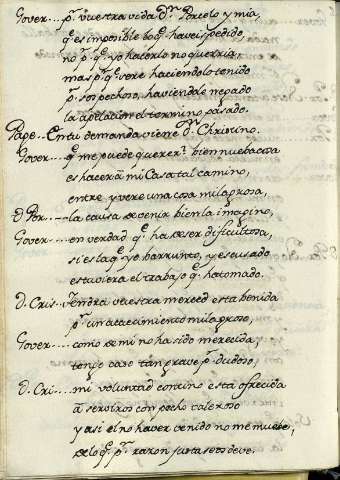 Gover... pr. vuestra vida Dn. Porcelo y mia,
qe. es imposible lo qe. haveis pedido,
no pr. qe. yo hacerlo no querria,
mas pr. qe. vere haciendolo tenido
pr. sospechoso, haviendole negado
la apelacion el termino pasado.
Page.. En tu demanda viene Dn. Christino.
Gover... qe. me puede querer? bien nueba cosa
es hacer a mi Casa tal camino,
entre y vere una cosa milagrosa,
D. Por... la causa de venir bien la imagino,
Gover... en verdad qe. ha de ser dificultosa,
si es la qe. yo barrunto, y escusado
estuviera el trabajo qe. ha tomado.
D. Cris... Tendra vuestra merced esta benida
pr. un atacimiento milagroso,
Gover... como de mi no ha sido merecida,
tengo caso tan grave pr. dudoso,
D. Cri... mi voluntad contino esta ofrecida
a serviros con pecho taleroso
y asi el no haver venido no me muebe,
de lo qe. pr. razon justa se os deve.